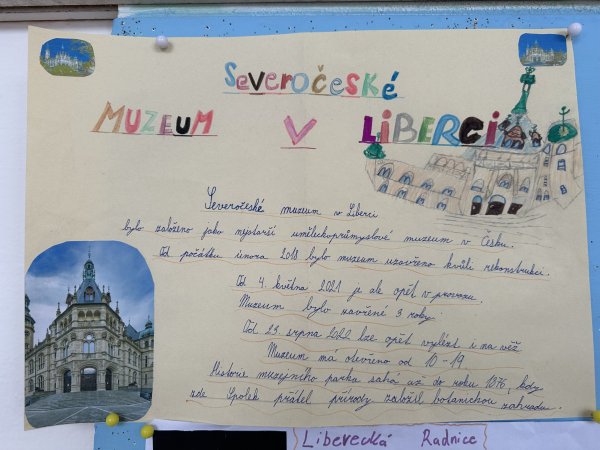 Severočeské
MUZEUM V LIBERCI
Severočeské muzeum v Liberci
bylo založeno jako nejstarší uměleckoprůmyslové muzeum v Česku.
Od počátku února 2018 bylo muzeum uzavřeno kvůli rekonstrukci.
Od 4. května 2021 je ale opět v provozu.
Muzeum bylo zavřené 3 roky.
Od 23 srpna 2022 lze opět vylézt i na věž
Muzeum má otevřeno od 10-19
Historie muzejního parku sahá až do roku 1876, kdy
zde Spolek přátel přírody založil botanickou zahradu.
Liberecká Radnice